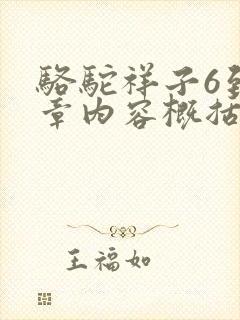 駱駝祥子6到
章内容概括
王福如